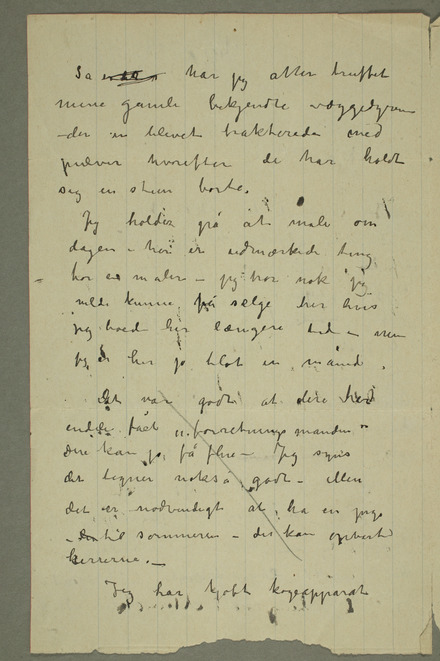 Så har jeg atter truffet
mine gamle bekjendte væggedyrene
– der er blevet trakteredes med
pulver hvorefter de har holdt
sig en stund borte.
Jeg holder på at male om
dagen – her er udmærkede ting
for en maler – jeg tror nok jeg
vilde kunne få selge her hvis
jeg boede her længere tid – men
jeg er her jo blot en måned.
Det var godt at dere
endelig fået "forretningsmanden"
Dere kan jo få flere – Jeg synes
det ligner nokså godt – Ellers
det er nødvendigt at ha en pige
til sommeren – der kan opvarte
herrerne. –
Jeg har kjøbt kogeapparat